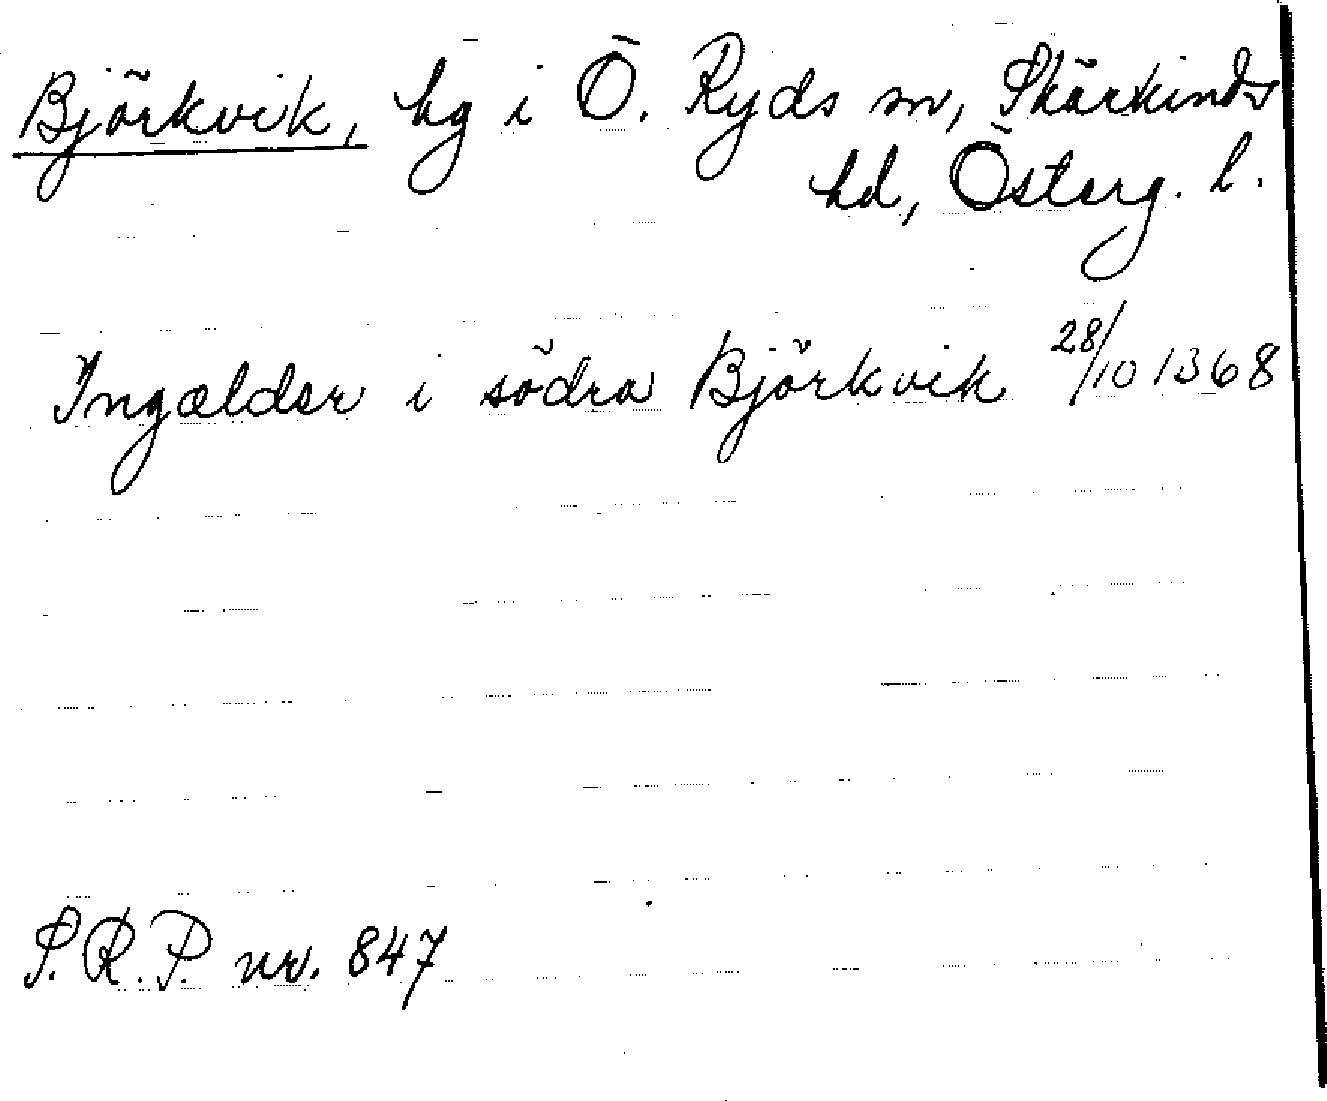 Björkvik, hg i Ö. Ryds sn, Skärkinds
hd, Österg. l.
Ingælder i södra Björkvik 28/10 1368
S.R.P. nr. 847